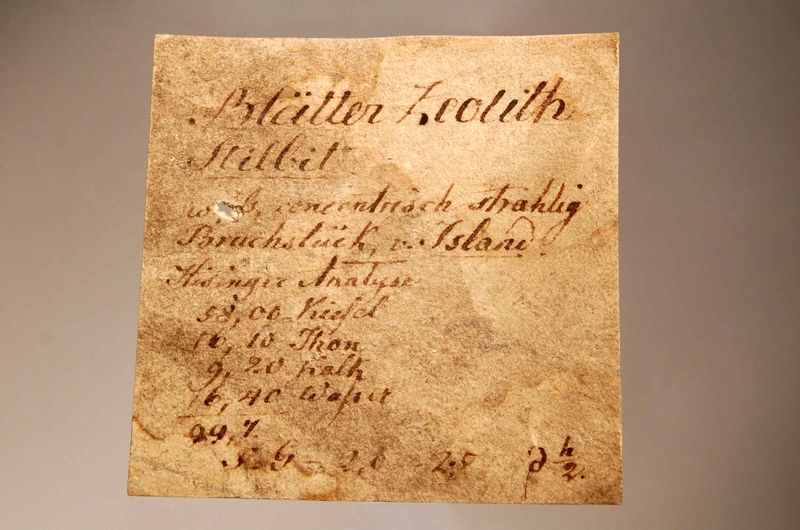 Blätter Zeolith
Stilbit
concentrisch strahlig
Bruchstück, v. Island.
Hisinger Analyse
58,00 Kiesel
16,10 Thon
9,20 Kalk
16,40 Waſser
99,7
S. G = 2, - 2,5